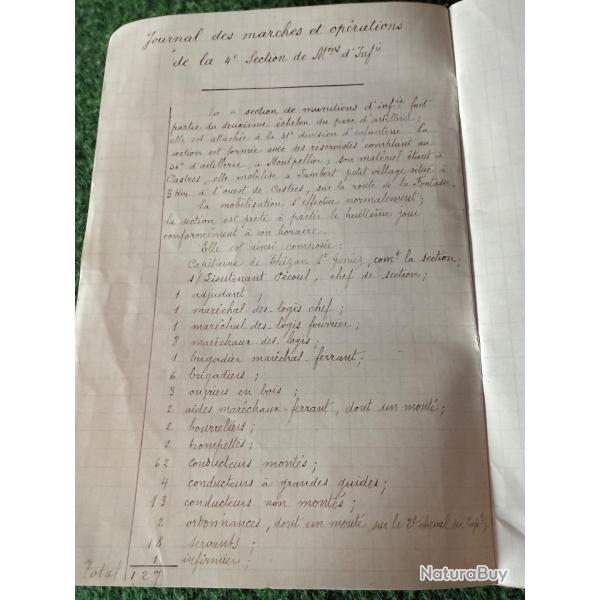 Journal des marches et opérations
de la 4e Section de Mons d'Infie
La 4e section de munitions d'infie fait
partie du deuxième échelon du parc d'artillerie;
elle est attachée à la 31e division d'infanterie. La
section est formée avec des réservistes comptant au
56e d'artillerie, à Montpellier; son matériel étant à
Castres, elle mobilise à Lambert petit village situé à
3 km. à l'ouest de Castres, sur la route de la Fontasse.
La mobilisation s'effectue normalement;
la section est prête à partir le huitième jour
conformément à son horaire.
Elle est ainsi composée:
Capitaine de Thézan St Geniez, comt la section;
s/Lieutenant Pécoul, chef de section;
1 adjudant;
1 maréchal des-logis chef;
1 maréchal-des-logis fourrier;
8 maréchaux des-logis;
1 brigadier maréchal-ferrant;
6 brigadiers;
3 ouvriers en bois;
2 aides maréchaux-ferrant, dont un monté;
2 bourreliers;
2 trompettes;
62 conducteurs montés;
4 conducteurs à grandes guides;
13 conducteurs non montés;
2 ordonnances, dont un monté sur le 2e cheval du Capne;
18 servants;
1 infirmier;
Total 127
NaturaBuy